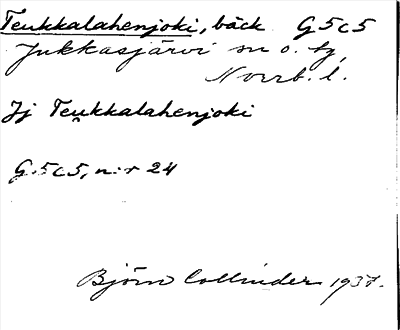 Teukkalahenjoki, bäck G5c5
Jukkasjärvi sn o. tg,
Norrb. l.
Jj Teu̯kkalahenjoki
G.5c5, n:r 24
Björn Collinder 1937.